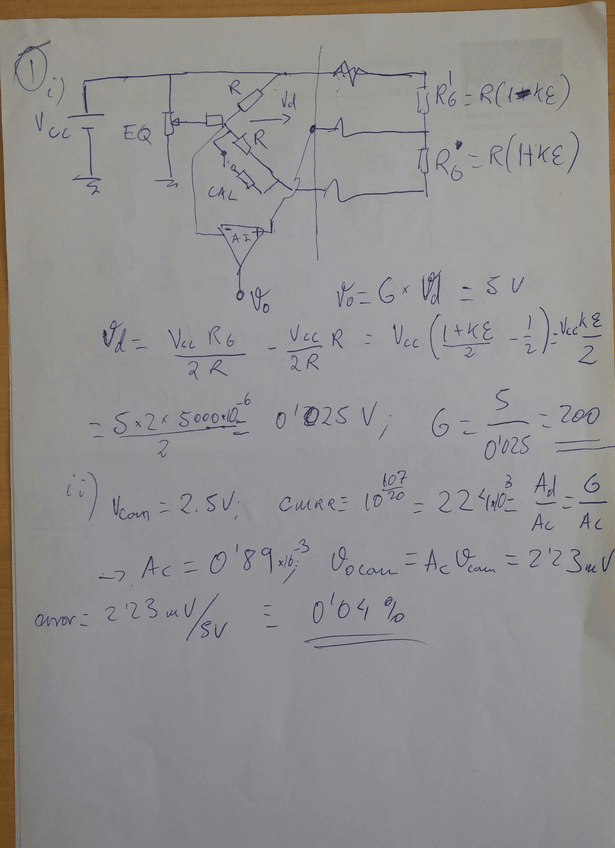 1
i)
Vcc
EQ
R
Vd
R
R
CAL
- AI +
Vo
R'G = R(1-Kε)
RG = R(1+Kε)
Vo = G × Vd = 5 V
Vd = Vcc RG / 2R - Vcc / 2R R = Vcc (1+Kε / 2 - 1/2) = Vcc Kε / 2
= 5×2×5000×10^-6 / 2 = 0'025 V; G = 5 / 0'025 = 200
ii) Vcom = 2.5V; CMRR = 10^107/20 = 224×10^3 = Ad / Ac = G / Ac
→ Ac = 0'89×10^-3; Vocom = Ac Vcom = 2'23 mV
error = 2'23 mV/5V = 0'04 %